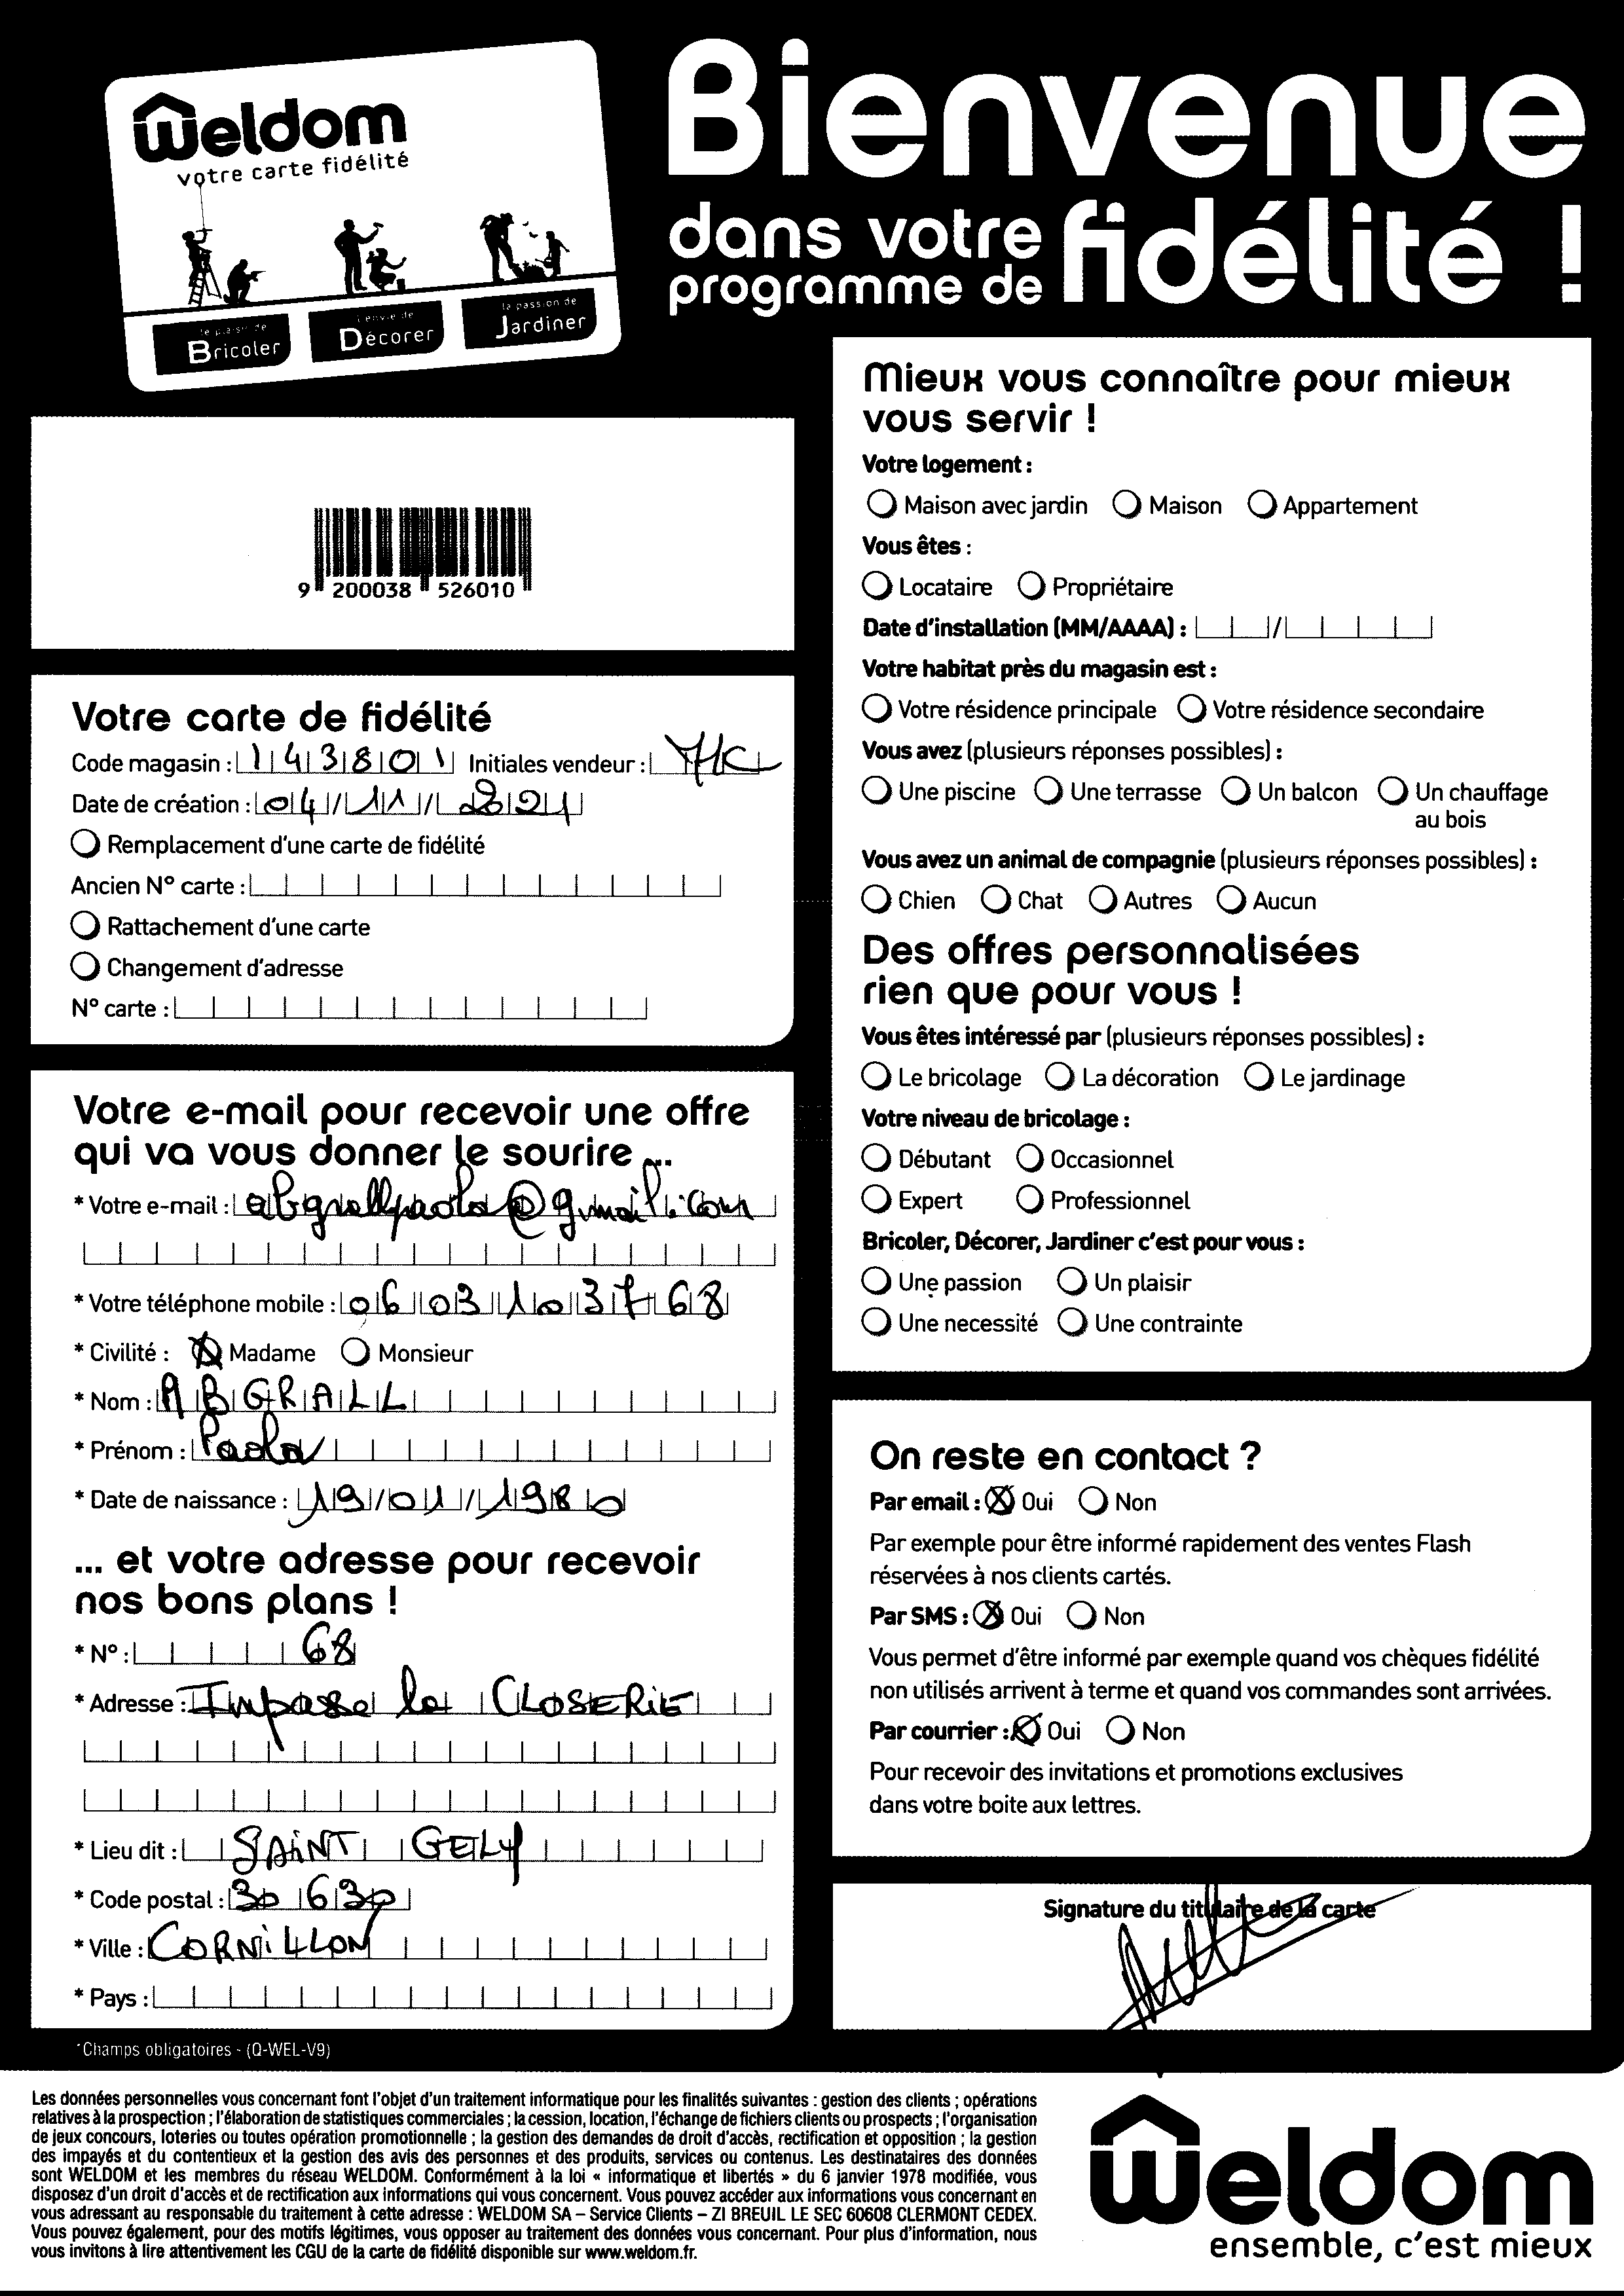 Weldom
votre carte fidélité
le plaisir de
Bricoler
l'envie de
Décorer
la passion de
Jardiner
Bienvenue
dans votre
programme de fidélité !
9 200038 526010
Votre carte de fidélité
Code magasin : 143801 Initiales vendeur :
Date de création : 04/11/2021
Remplacement d'une carte de fidélité
Ancien N° carte :
Rattachement d'une carte
Changement d'adresse
N° carte :
Votre e-mail pour recevoir une offre
qui va vous donner le sourire ...
* Votre e-mail : abgrallpaola@gmail.com
* Votre téléphone mobile : 06 03 10 37 68
* Civilité : Madame Monsieur
* Nom : ABGRALL
* Prénom : Paola
* Date de naissance : 19/01/1980
... et votre adresse pour recevoir
nos bons plans !
* N° : 68
* Adresse : Impasse la CLOSERIE
* Lieu dit : SAINT GELY
* Code postal : 30 630
* Ville : CORNILLON
* Pays :
*Champs obligatoires - (Q-WEL-V9)
Mieux vous connaître pour mieux
vous servir !
Votre logement :
Maison avec jardin Maison Appartement
Vous êtes :
Locataire Propriétaire
Date d'installation (MM/AAAA) : /
Votre habitat près du magasin est :
Votre résidence principale Votre résidence secondaire
Vous avez (plusieurs réponses possibles) :
Une piscine Une terrasse Un balcon Un chauffage
au bois
Vous avez un animal de compagnie (plusieurs réponses possibles) :
Chien Chat Autres Aucun
Des offres personnalisées
rien que pour vous !
Vous êtes intéressé par (plusieurs réponses possibles) :
Le bricolage La décoration Le jardinage
Votre niveau de bricolage :
Débutant Occasionnel
Expert Professionnel
Bricoler, Décorer, Jardiner c'est pour vous :
Une passion Un plaisir
Une necessité Une contrainte
On reste en contact ?
Par email : Oui Non
Par exemple pour être informé rapidement des ventes Flash
réservées à nos clients cartés.
Par SMS : Oui Non
Vous permet d'être informé par exemple quand vos chèques fidélité
non utilisés arrivent à terme et quand vos commandes sont arrivées.
Par courrier : Oui Non
Pour recevoir des invitations et promotions exclusives
dans votre boite aux lettres.
Signature du titulaire de la carte
Les données personnelles vous concernant font l'objet d'un traitement informatique pour les finalités suivantes : gestion des clients ; opérations
relatives à la prospection ; l'élaboration de statistiques commerciales ; la cession, location, l'échange de fichiers clients ou prospects ; l'organisation
de jeux concours, loteries ou toutes opération promotionnelle ; la gestion des demandes de droit d'accès, rectification et opposition ; la gestion
des impayés et du contentieux et la gestion des avis des personnes et des produits, services ou contenus. Les destinataires des données
sont WELDOM et les membres du réseau WELDOM. Conformément à la loi « informatique et libertés » du 6 janvier 1978 modifiée, vous
disposez d'un droit d'accès et de rectification aux informations qui vous concernent. Vous pouvez accéder aux informations vous concernant en
vous adressant au responsable du traitement à cette adresse : WELDOM SA – Service Clients – ZI BREUIL LE SEC 60608 CLERMONT CEDEX.
Vous pouvez également, pour des motifs légitimes, vous opposer au traitement des données vous concernant. Pour plus d'information, nous
vous invitons à lire attentivement les CGU de la carte de fidélité disponible sur www.weldom.fr.
Weldom
ensemble, c'est mieux